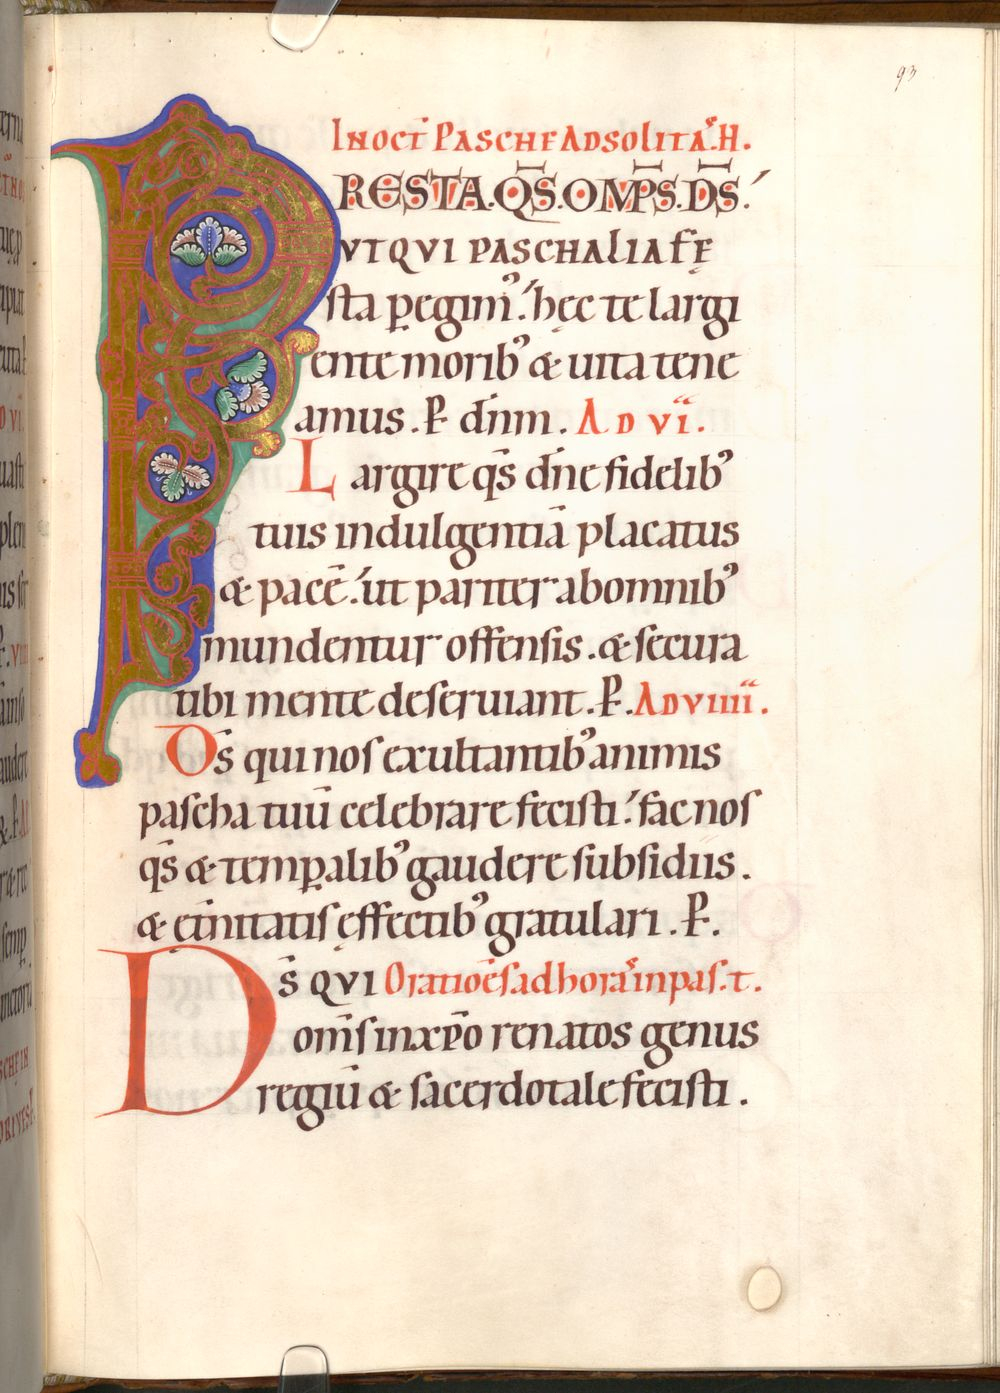 93
IN OCT̄ PASCHE AD SOLITA⁹.H.
PRESTA.Q̄S.OM̄PS.D̄S.
VT QVI PASCHALIA FĘ
sta pegim⁹. hęc te largi
ente morib⁹ & uita tene
amus. P̄ dn̄m. AD VI.
Largire qs̄ dn̄e fidelib⁹
tuis indulgentiā placatus
& pacē. ut pariter ab omnib⁹
mundentur offensis. & secura
tibi mente deseruiant. P̄. AD VIIII.
Ds̄ qui nos exultantib⁹ animis
pascha tuū celebrare fecisti. fac nos
qs̄ & temp̱alib⁹ gaudere subsidiis.
& et̄nitatis effectib⁹ gratulari. P̄.
Ds̄ QVI Orationēs ad horas in pas. t.
om̄s in xp̄o renatos genus
regiū & sacerdotale fecisti.